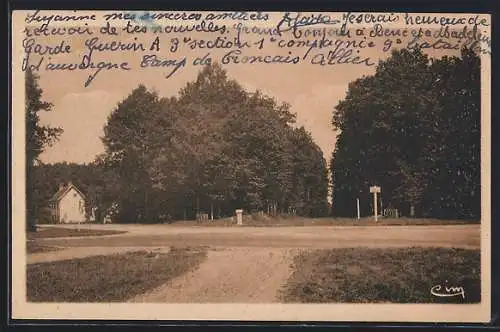 Suzanne mes sincères amitiés Je serais heureux de
recevoir de tes nouvelles. Grand bonjour à René et a Madeleine
Garde Guerin A 3e section 1e compagnie 9e batai
d'auvergne Camp de Troncais Allier
cim